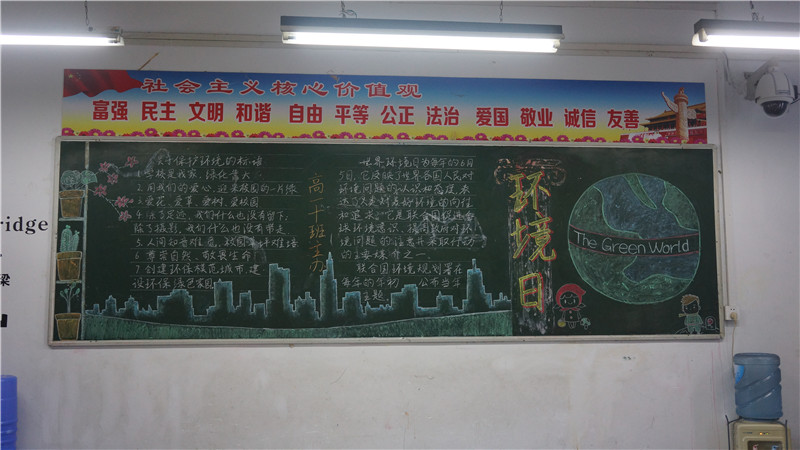 社会主义核心价值观
富强 民主 文明 和谐 自由 平等 公正 法治 爱国 敬业 诚信 友善
ridge
梁
关于保护环境的标语
1.学校是我家,绿化靠大
2.用我们的爱心,迎来校园的一片绿
3.爱花,爱草,爱树,爱校园
4.除了足迹,我们什么也没有留下,
除了摄影,我们什么也没有带走
5.人间
6 尊爱自然,敬畏生命
7 创建环保模范城市 建
设环保绿色家园
高一
班主办
世界环境日为每年的6月
5日,它反映了世界各国人民对
环境问题的认识和态度,表
达了人类对美好环境的向往
和追求。它是联合国促进全
球环境意识、提高政府对环
境问题的注意并采取行动
的主要媒介之一
联合国环境规划署在
每年的年初 公布当年
主题
环境日
The Green World